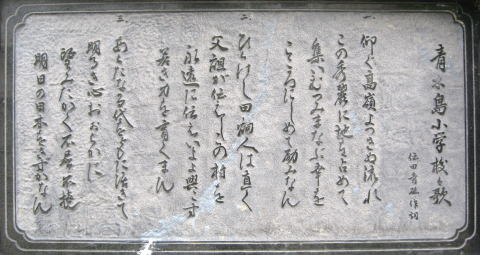 青谷島小学校々歌
伝田青磁作詞
一、
仰ぐ高嶺よつきぬ流れ
この秀麗に地を占めて
集いむつみまなぶ幸を
二、
ひらけし田畑人は直く
父祖が伝えしこの村を
永遠に伝えいよよ興こす
若き力を育くまん
三、
あらたな時代をともに活きて
明るき心おおらかに
望みたかく不屈不撓
明日の日本をきずかなん